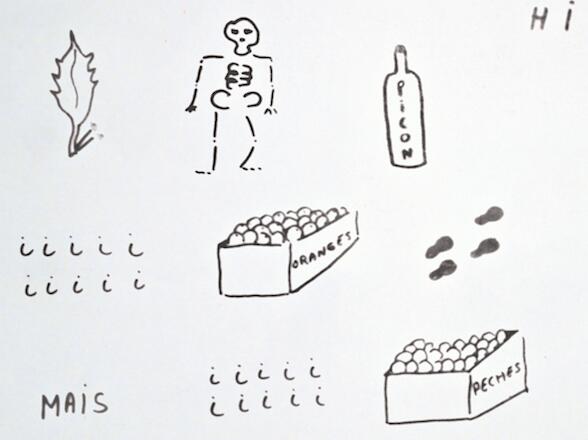 Hi
PiCON
i i i i i
i i i i i
ORANGES
MAIS
i i i i i
i i i i i
PECHES